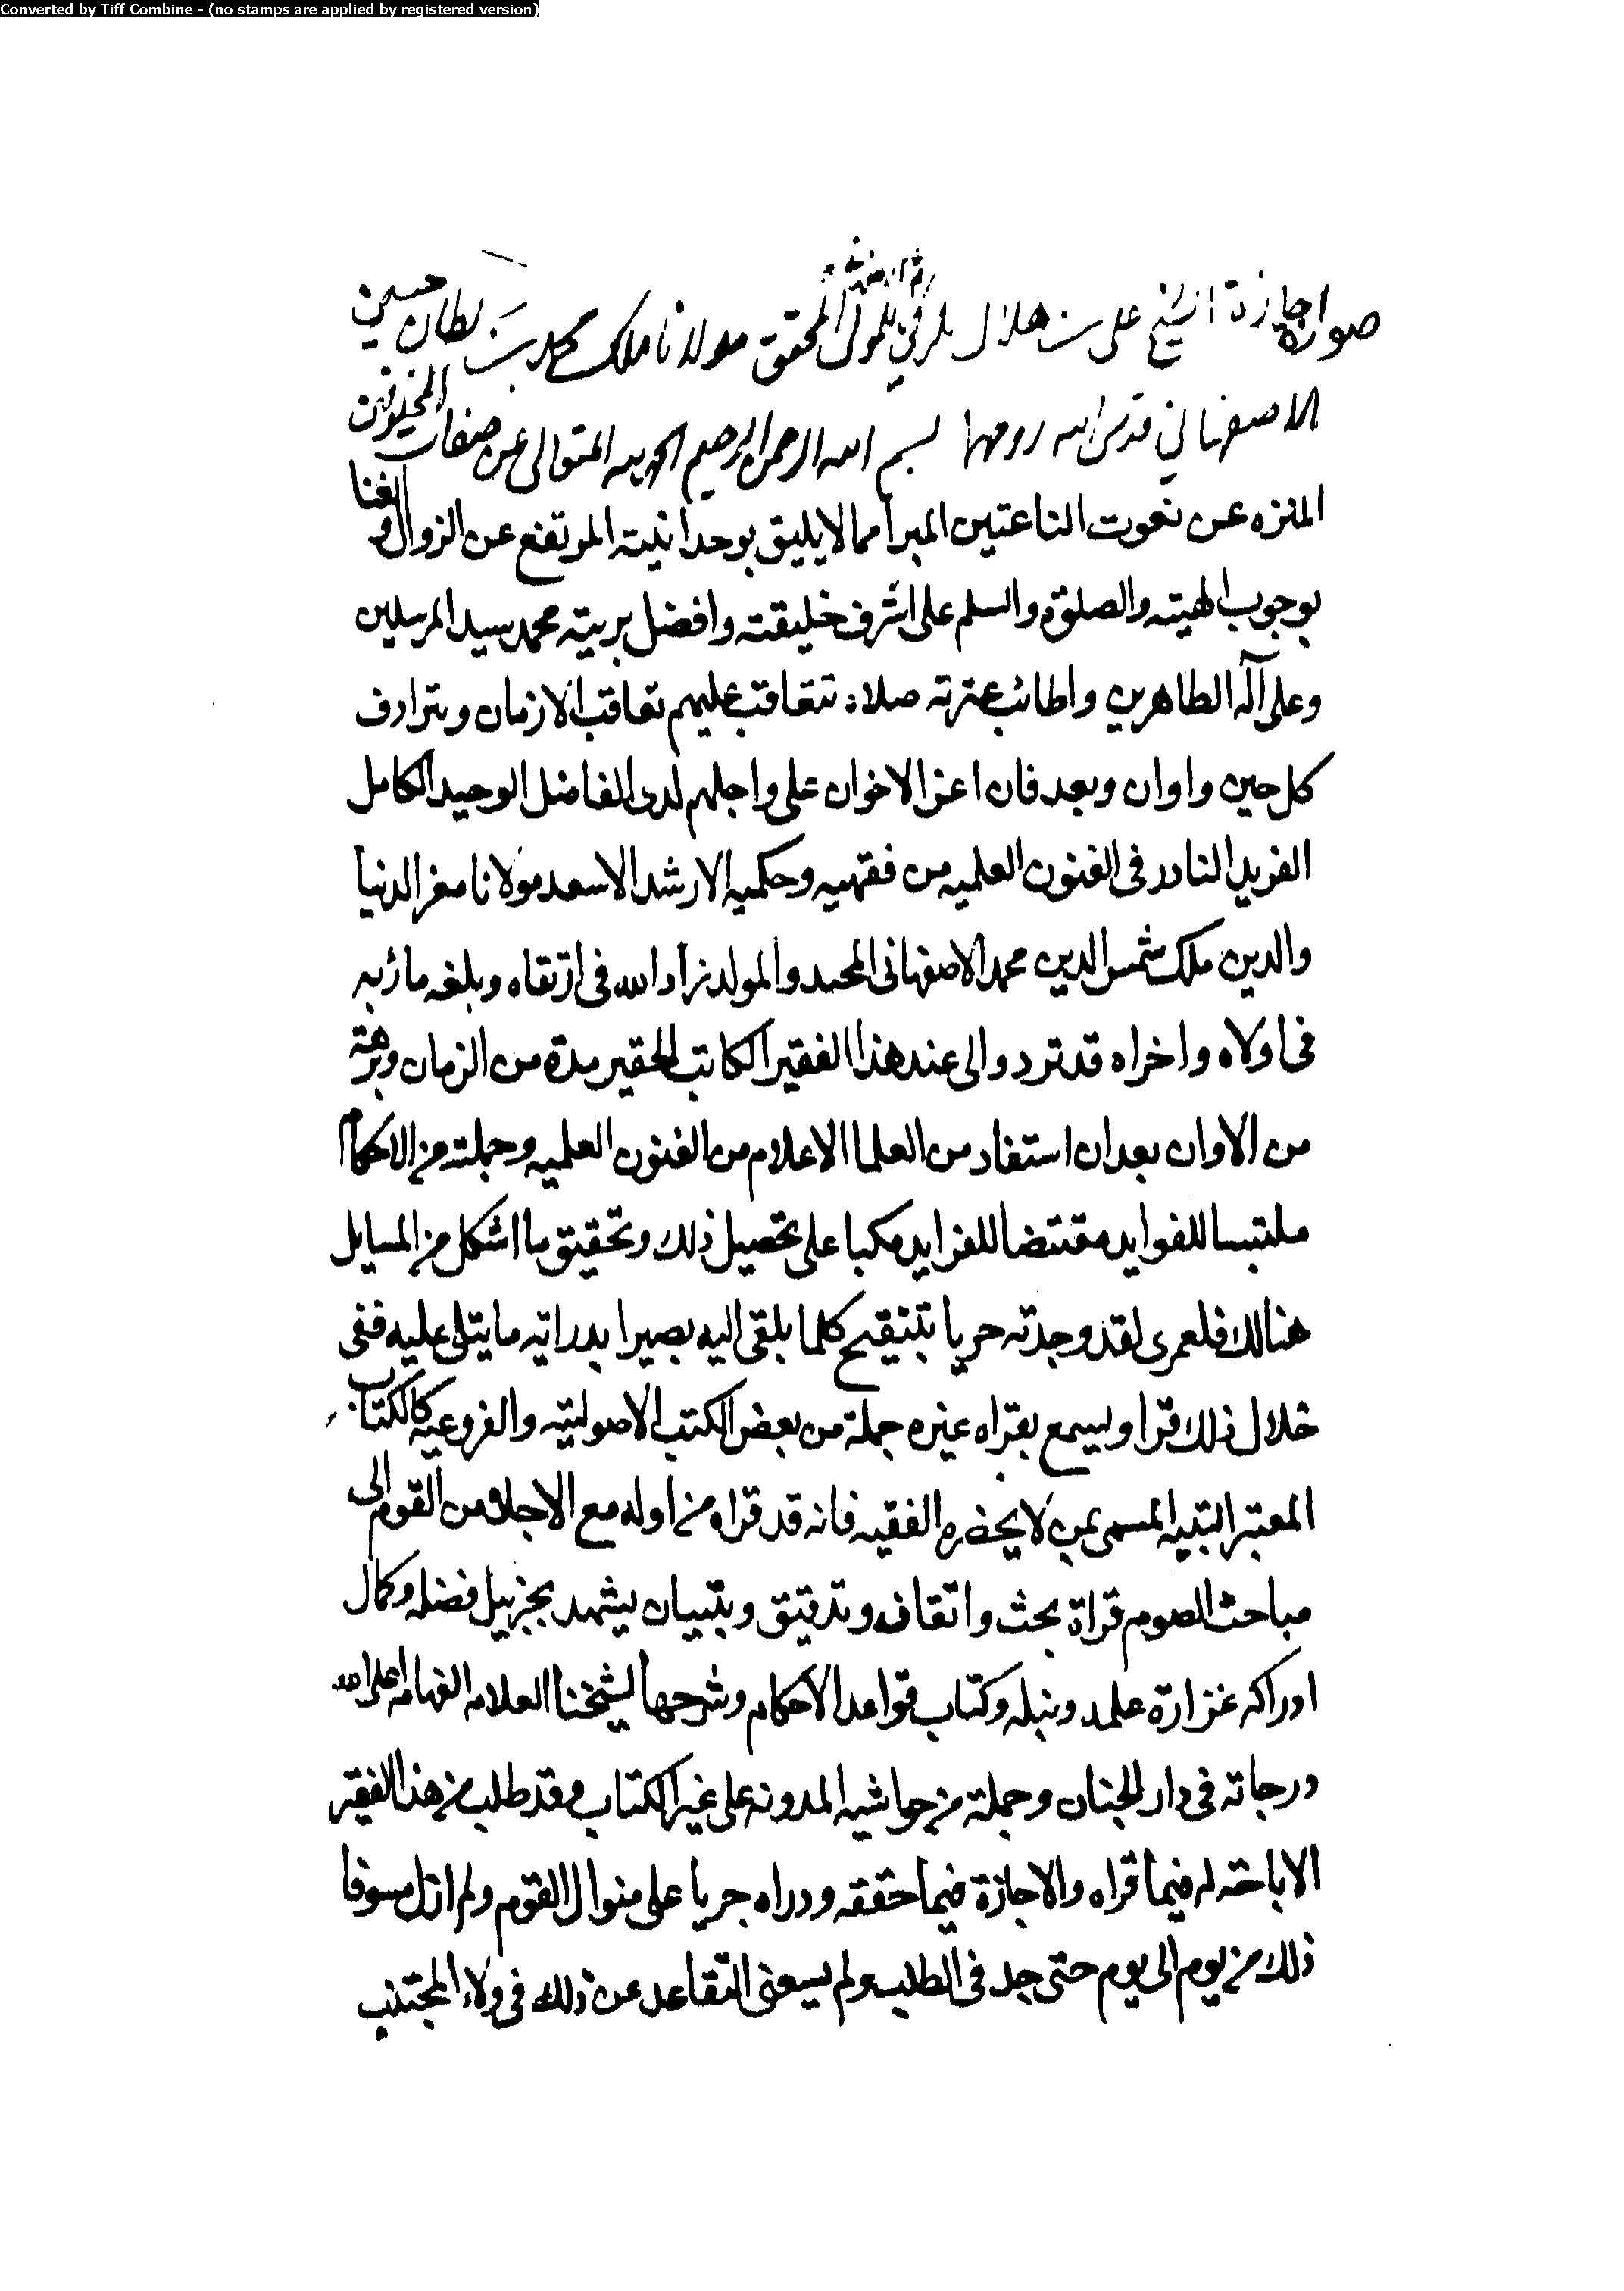 Converted by Tiff Combine - (no stamps are applied by registered version)
صورة اجازة الشيخ على بن هلال الكركي للمولى المحقق مولانا ملك محمد بن سلطان حسين
الاصفهاني قدس الله روحهما بسم الله الرحمن الرحيم الحمد لله المتعالى عن صفات المخلوقين
المنزه عن نعوت الناعتين المبرا مما لا يليق بوحدانيته المرتفع عن الزوال والفنا
بوجوب الهيته والصلوة والسلم على اشرف خليقته وافضل بريته محمد سيد المرسلين
وعلى آله الطاهرين واطائب عترته صلاة تتعاقب عليهم تعاقب الازمان وتترادف
كل حين واوان وبعد فان اعز الاخوان على واجلهم لدى الفاضل الوحيد الكامل
الفريد النادر فى الفنون العلميه من فقهيه وحكميه الارشد الاسعد مولانا معز الدنيا
والدين ملك شمس الدين محمد الاصفهانى المحتد والمولد زاد الله فى ارتقاه وبلغه مآربه
فى اولاه واخراه قد تردد الى عند هذا الفقير الكاتب الحقير مدة من الزمان وبرهة
من الاوان بعد ان استفاد من العلما الاعلام من الفنون العلميه وجملة من الاحكام
ملتبسا للفوايد مقتنضا للفرايد مكبا على تحصيل ذلك وتحقيق ما اشكل من المسايل
هنالك فلعمرى لقد وجدته حريا بتنقيح كلما يلقى اليه بصيرا بدراية ما يتلى عليه ففى
خلال ذلك قرا ويسمع بقراه غيره جملة من بعض الكتب الاصوليته والفروعيه كالكتاب
المعتبر النبيه المسمى بمن لا يحضره الفقيه فانه قد قراه من اوله مع الاجلاء من القوم الى
مباحث الصوم قراة بحث واتقان وتدقيق وتبيان يشهد بجزيل فضله وكمال
ادراكه غزارة علمه ونبله وكتاب قواعد الاحكام وشرحها لشيخنا العلامه الفهامه اعلى الله
درجاته فى دار الجنان وجملة من حواشيه المدونه على غير الكتاب وقد طلب من هذا الفقير
الاباحة له فيما قراه والاجازة فيما حققه ودراه جريا على منوال القوم ولم ازل مسوفا
ذلك من يوم الى يوم حتى جد فى الطلب ولم يسعنى التقاعد عن ذلك فى ولاء المجتنب